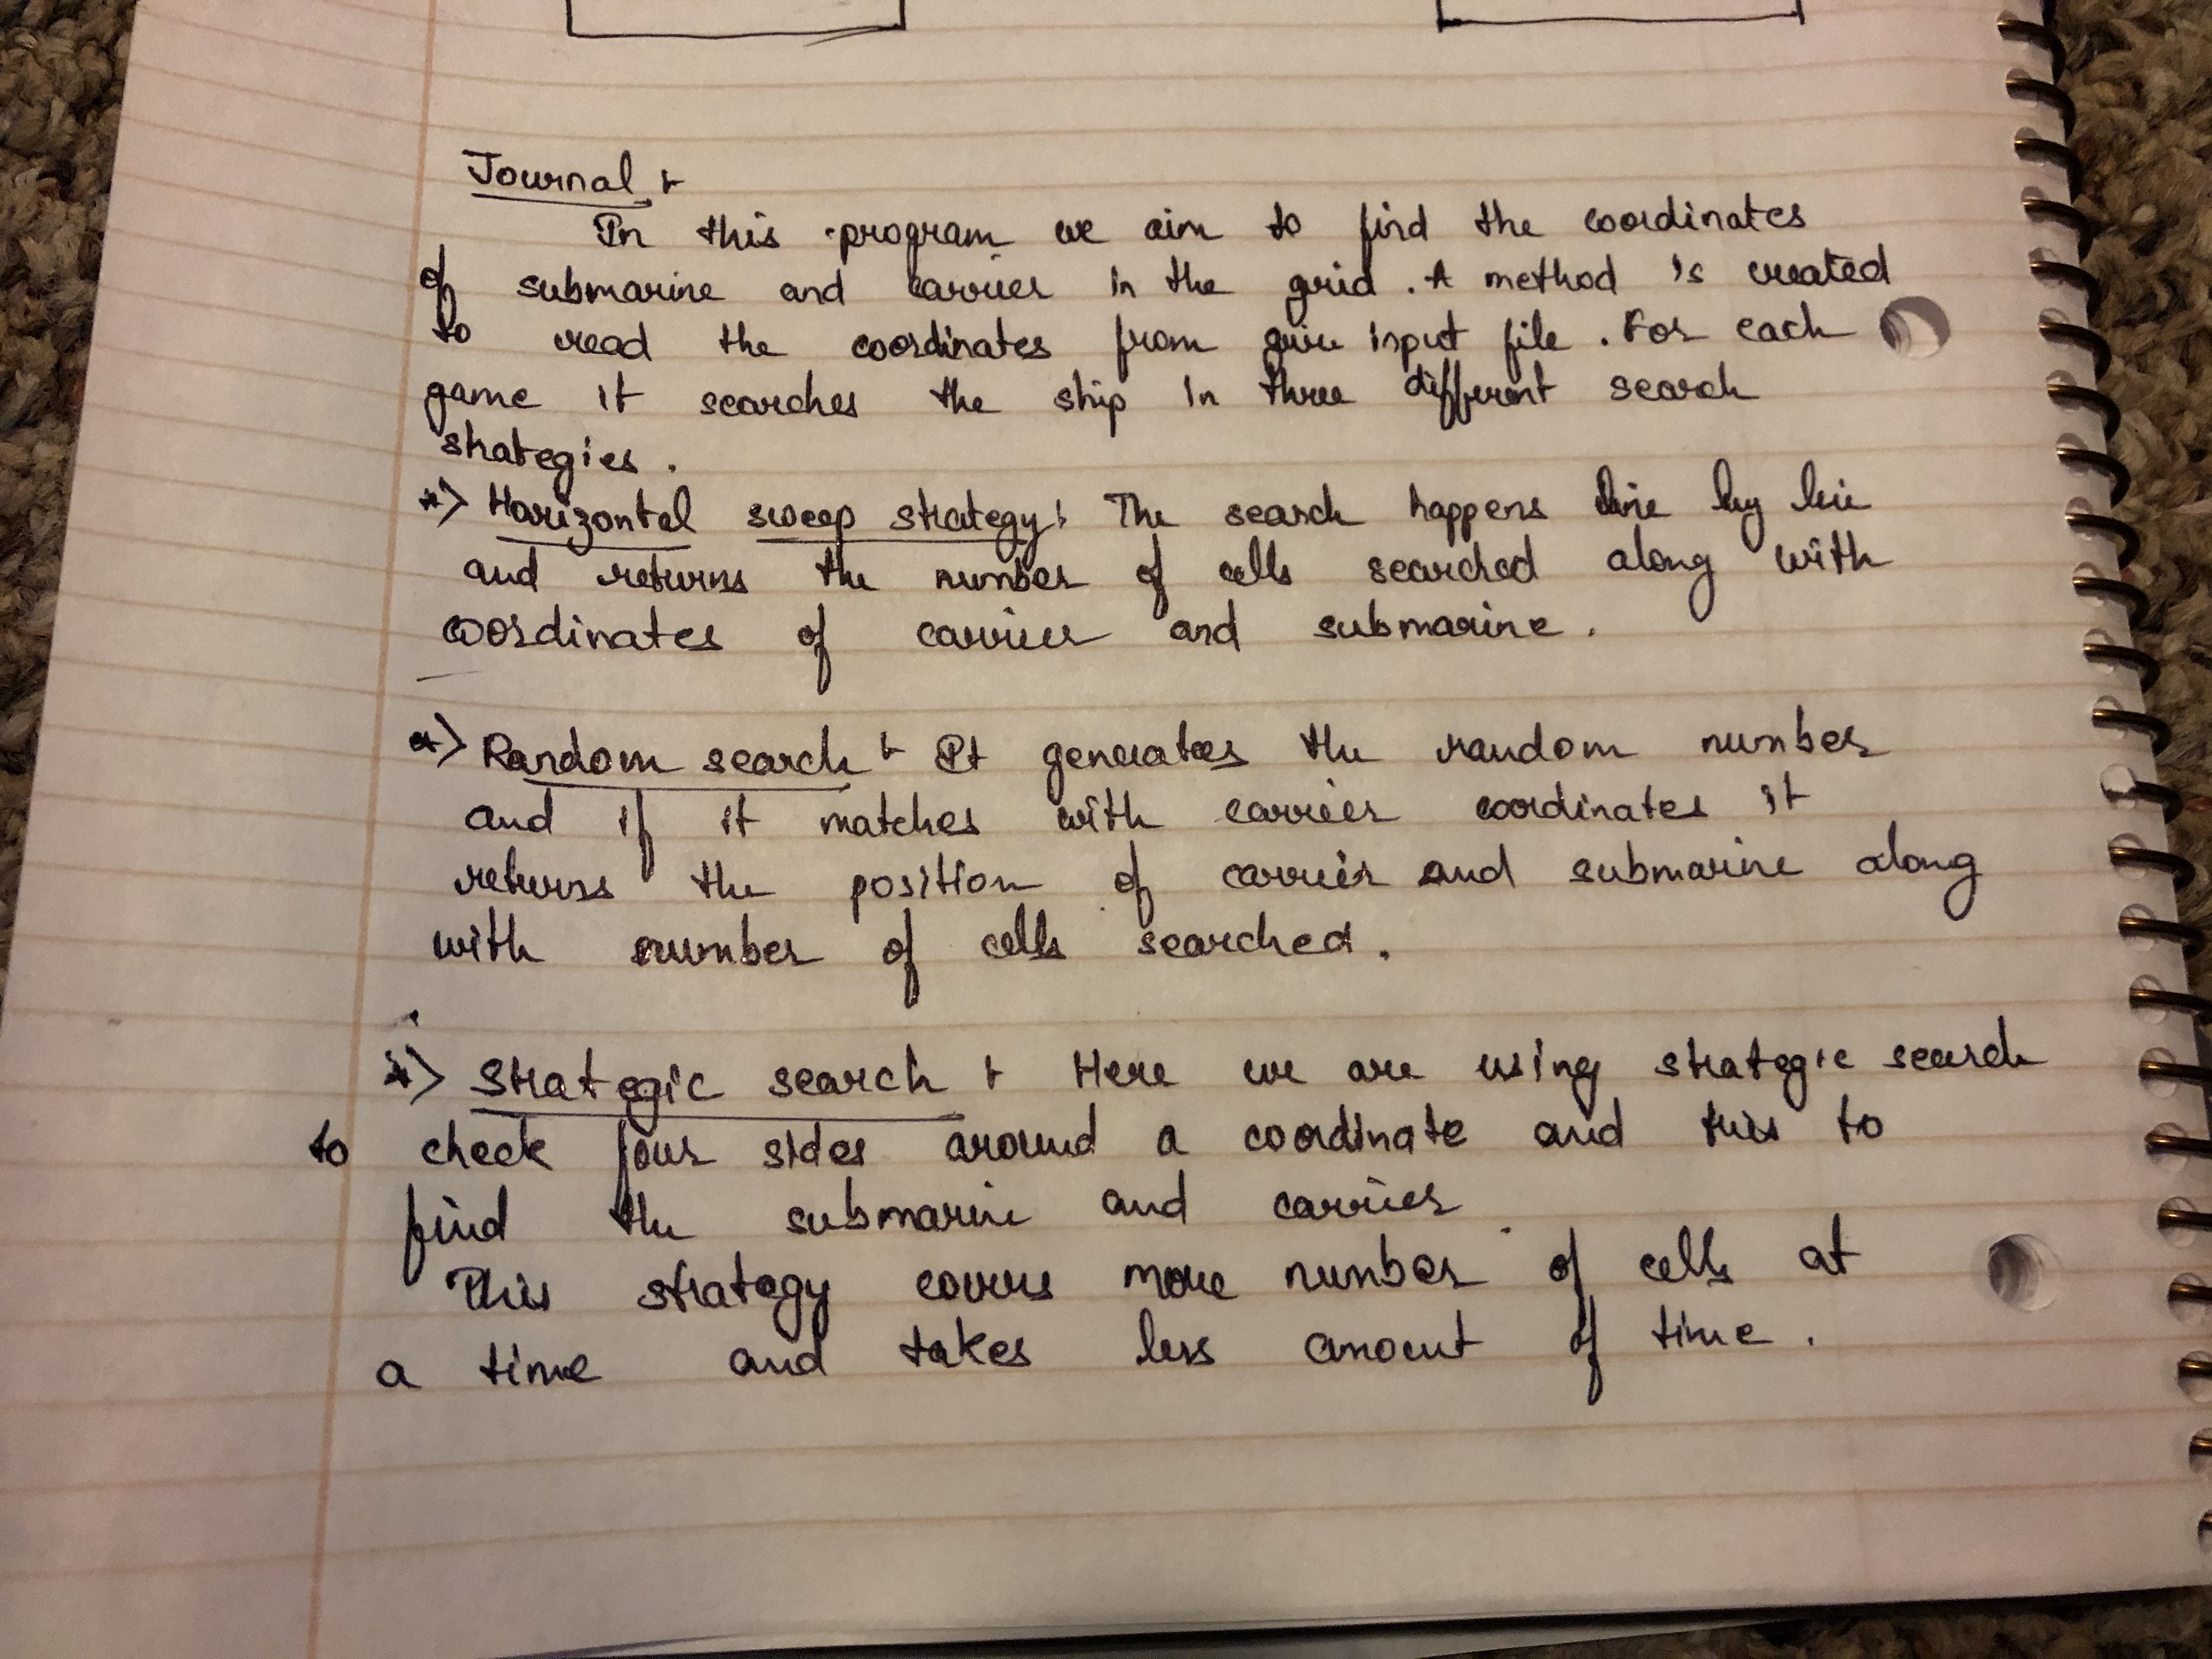 Journal :-
In this program we aim to find the coordinates
of submarine and carrier in the grid. A method is created
to read the coordinates from given input file. For each
game it searches the ship in three different search
strategies.
*> Horizontal sweep strategy: The search happens line by line
and returns the number of cells searched along with
coordinates of carrier and submarine.
*> Random search :- It generates the random number
and if it matches with carrier coordinates it
returns the position of carrier and submarine along
with number of cells searched.
*> Strategic search :- Here we are using strateggic search
to check four sides around a coordinate and this to
find the submarine and carrier
This strategy covers more number of cells at
a time and takes less amount of time.